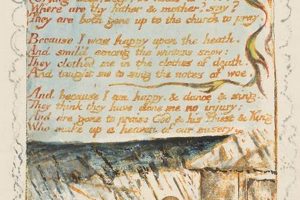 Where are thy father & mother? say?
They are both gone up to the church to pray.
Because I was happy upon the heath.
And smil'd among the winters snow:
They clothed me in the clothes of death.
And taught me to sing the notes of woe.
And because I am happy, & dance & sing.
They think they have done me no injury:
And are gone to praise God & his Priest & King
Who make up a heaven of our misery